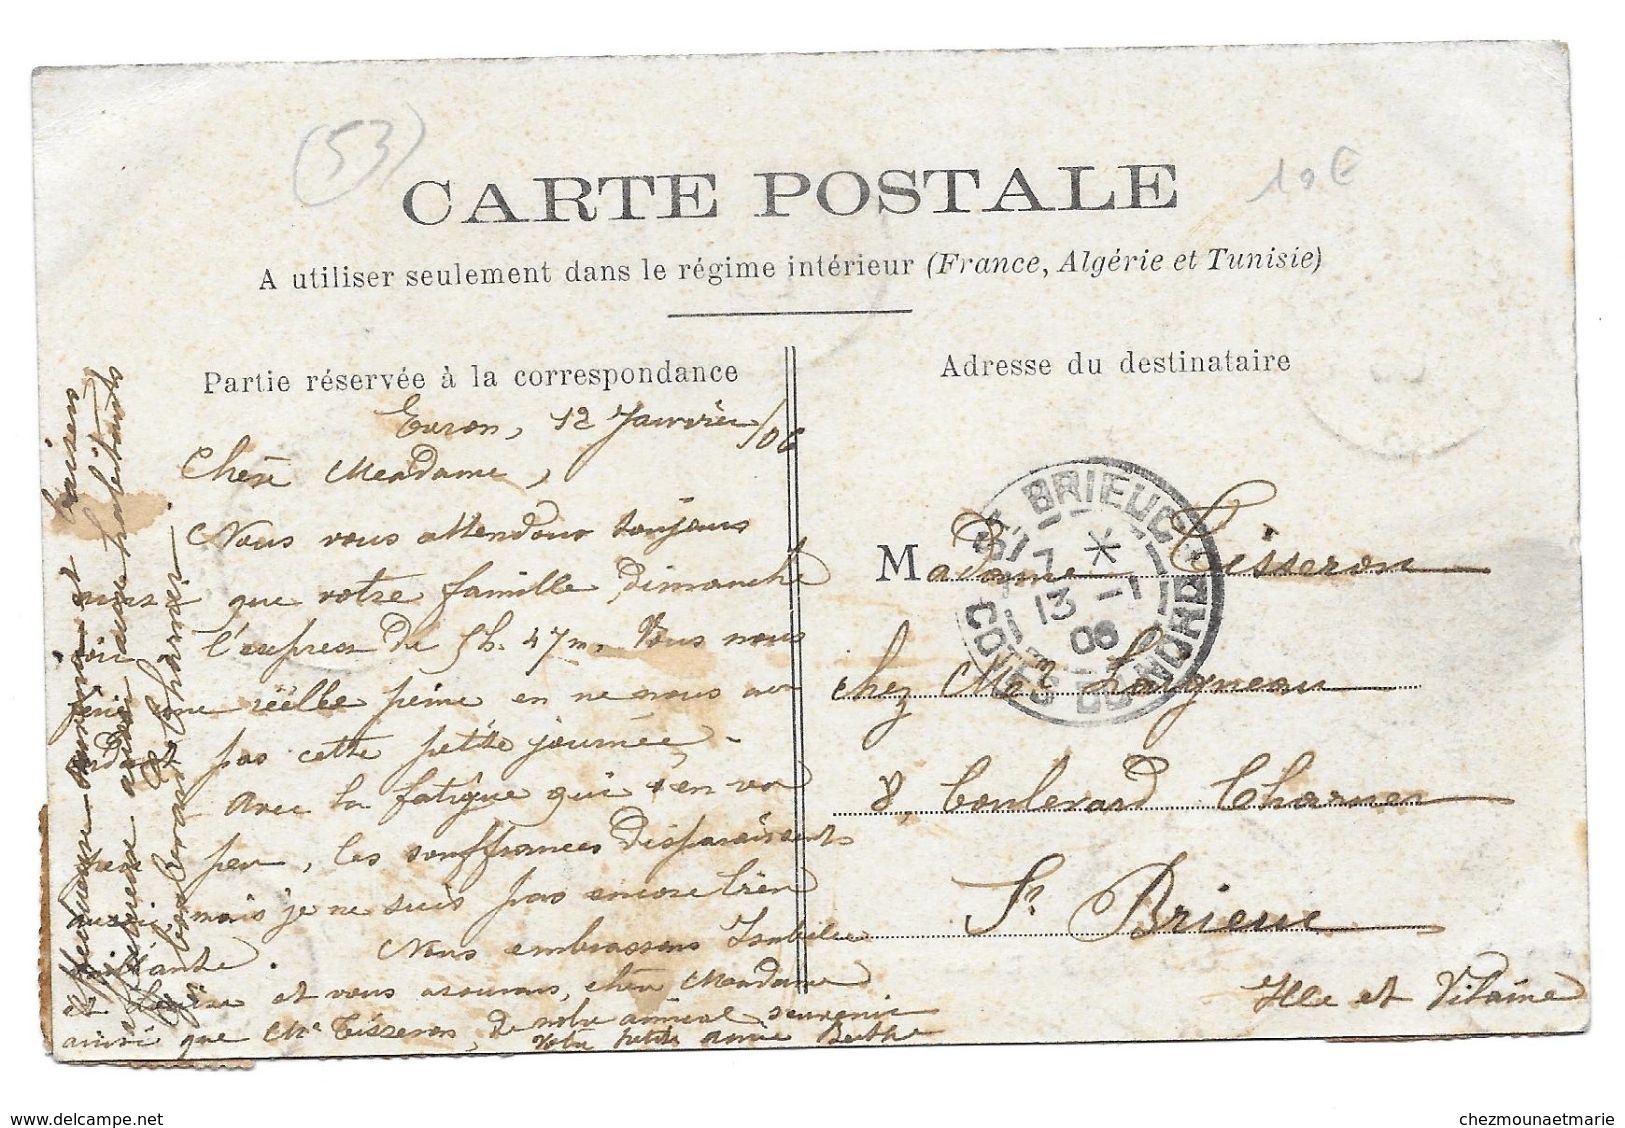 (53)
10 €
CARTE POSTALE
A utiliser seulement dans le régime intérieur (France, Algérie et Tunisie)
Partie réservée à la correspondance
Evron, 12 Janvier/06
Chère Madame,
Nous vous attendons toujours
que votre famille Dimanche
l'express de 5h. 47m. Vous nous
une réelle peine en ne nous
pas cette petite journée.
Avec la fatigue qui s'en va
peu, les souffrances disparaissent
aussi mais je ne suis pas encore bien
vaillante. Nous embrassons Isabelle
et vous assurons, chère Madame
ainsi que Mr Tisseron, de notre amical souvenir
Votre petite amie Berthe
baisers
aux habitants
boulevard Charner
Adresse du destinataire
Madame Tisseron
chez Mme Laigneau
8, boulevard Charner
St Brieuc
Ille et Vilaine
ST BRIEUC
7 *
13 -1
06
COTES DU NORD
www.delcampe.net
chezmounaetmarie